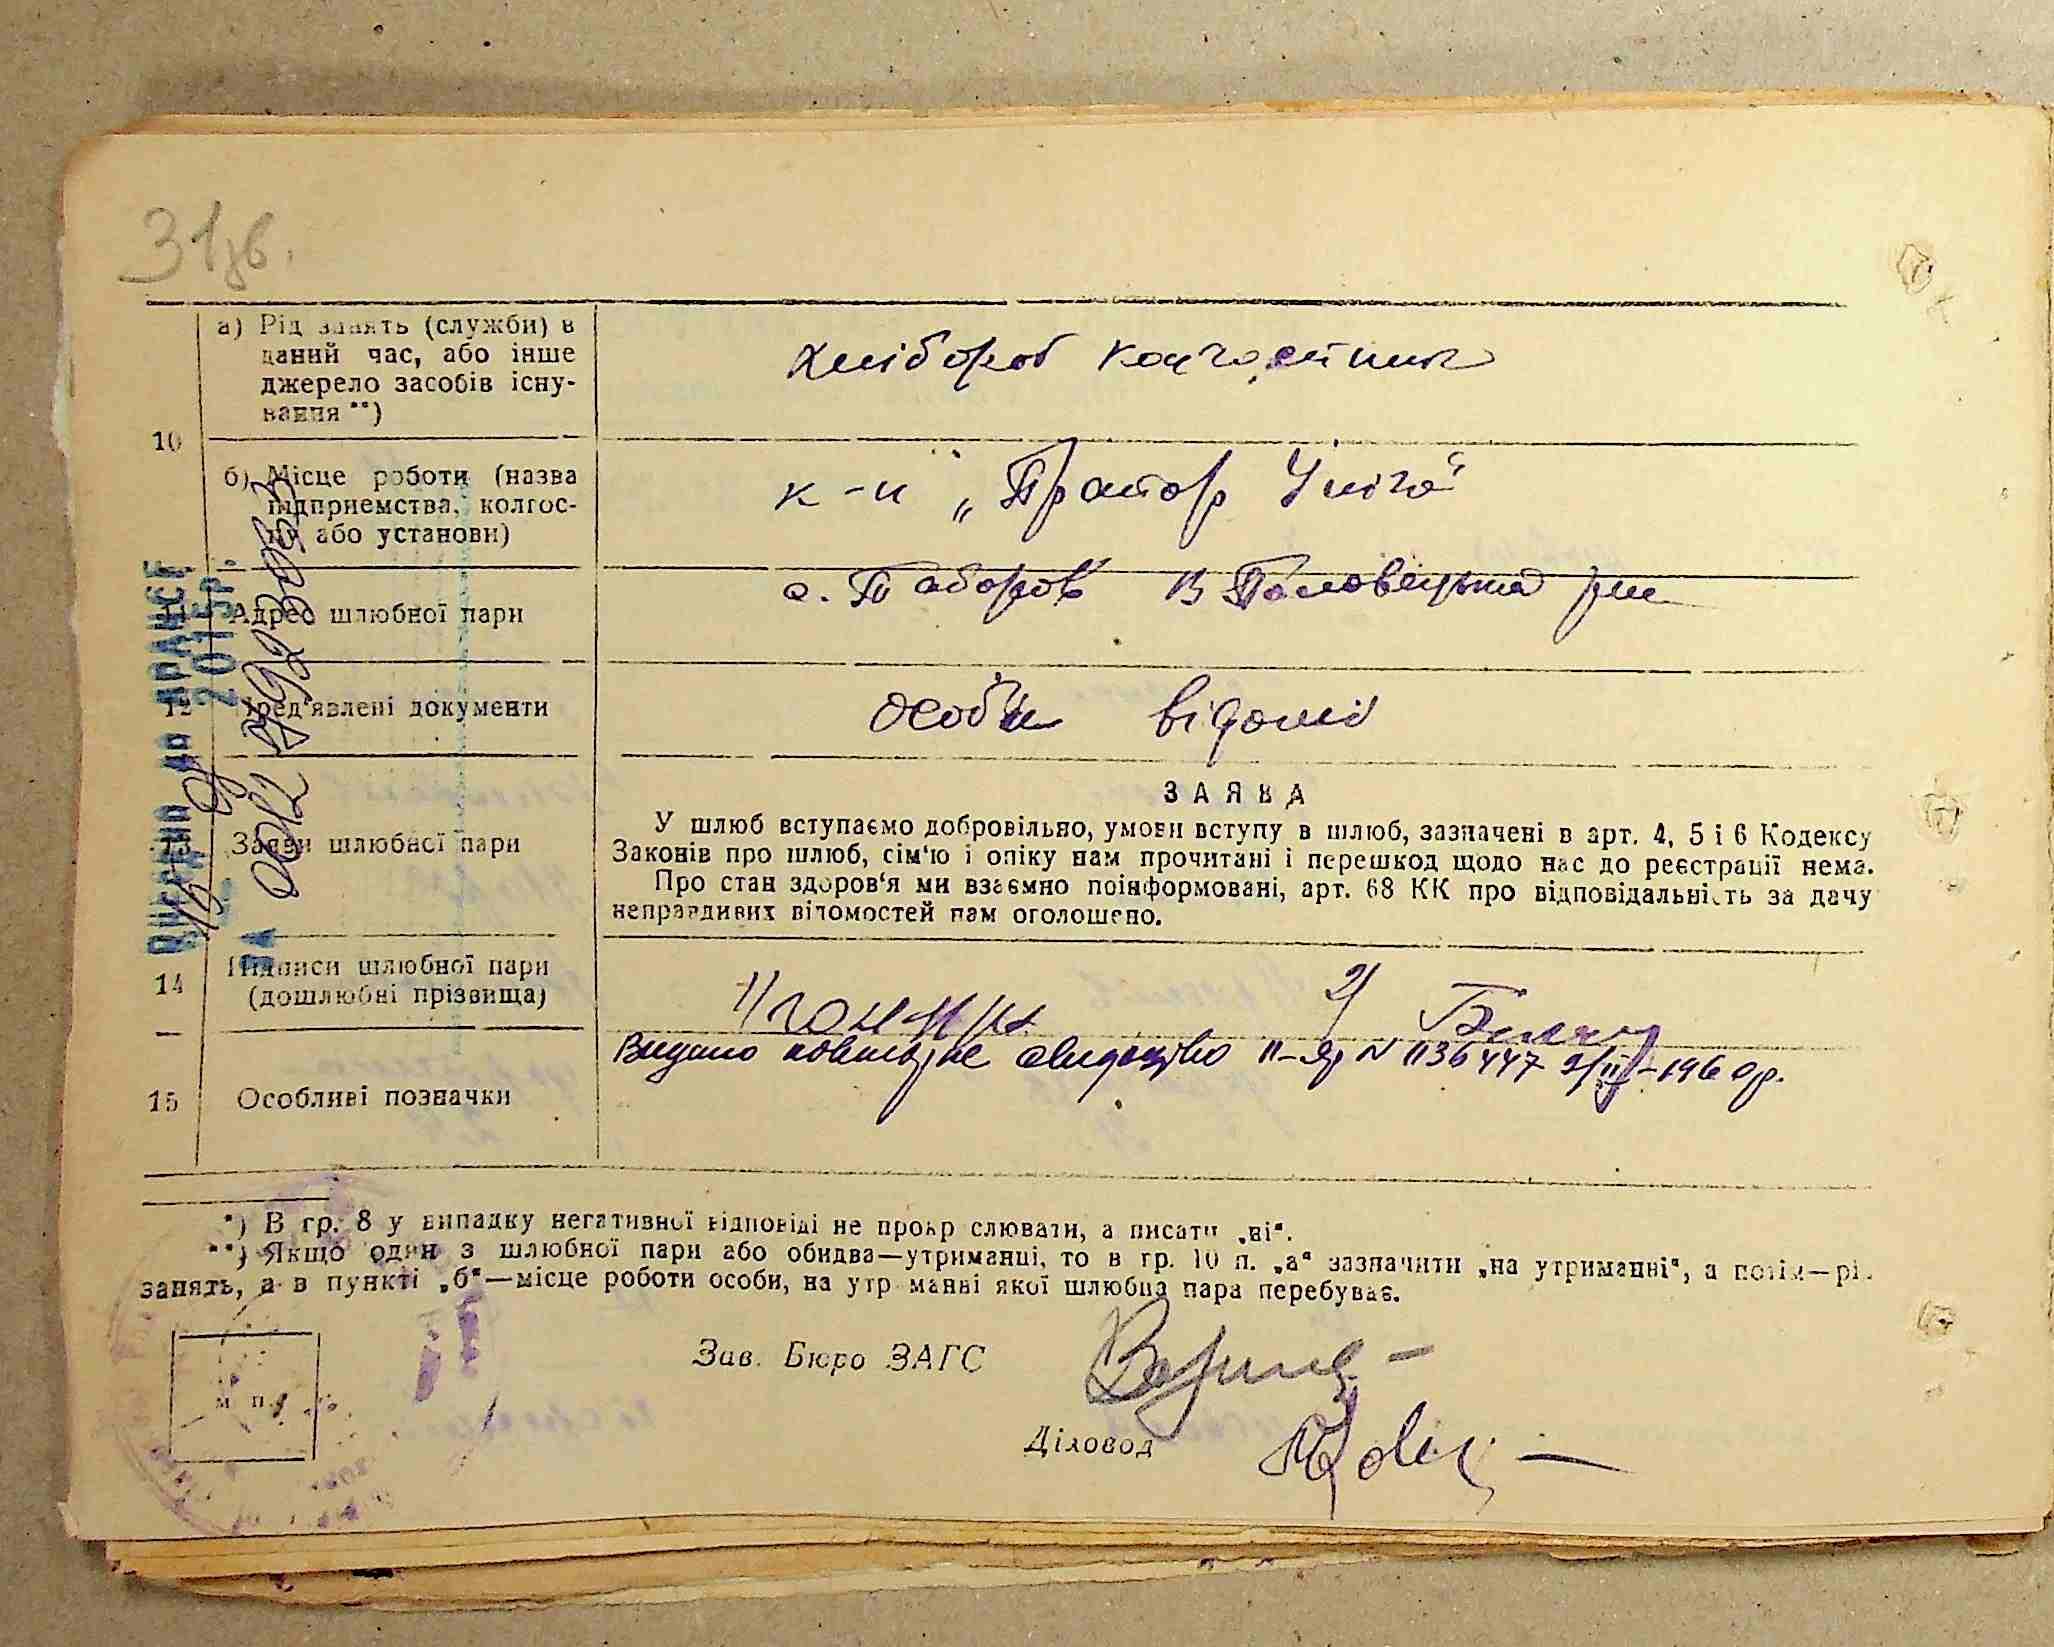 31зв.
10
а) Рід занять (служби) в
даний час, або інше
джерело засобів існу-
вання **)
хлібороб колгоспник
б) Місце роботи (назва
підприємства, колгос-
пу або установи)
к-п „Трактор
Адрес шлюбної пари
с. Таборов В Половецький р-н
12 Пред'явлені документи
особи відомі
13 Заяви шлюбної пари
ЗАЯВА
У шлюб вступаємо добровільно, умови вступу в шлюб, зазначені в арт. 4, 5 і 6 Кодексу
Законів про шлюб, сім'ю і опіку нам прочитані і перешкод щодо нас до реєстрації нема.
Про стан здоров'я ми взаємно поінформовані, арт. 68 КК про відповідальність за дачу
неправдивих відомостей нам оголошено.
14 Підписи шлюбної пари
(дошлюбні прізвища)
1) 2)
15 Особливі позначки
Видано повторне свидоцтво II-яр N 036447 9/IV-1960р.
*) В гр. 8 у випадку негативної відповіді не прокреслювати, а писати „ні“.
**) Якщо один з шлюбної пари або обидва—утриманці, то в гр. 10 п. „а“ зазначити „на утриманні“, а потім—рід
занять, а в пункті „б“—місце роботи особи, на утриманні якої шлюбна пара перебуває.
м. п.
Зав. Бюро ЗАГС
Діловод
2015р.
ЗА